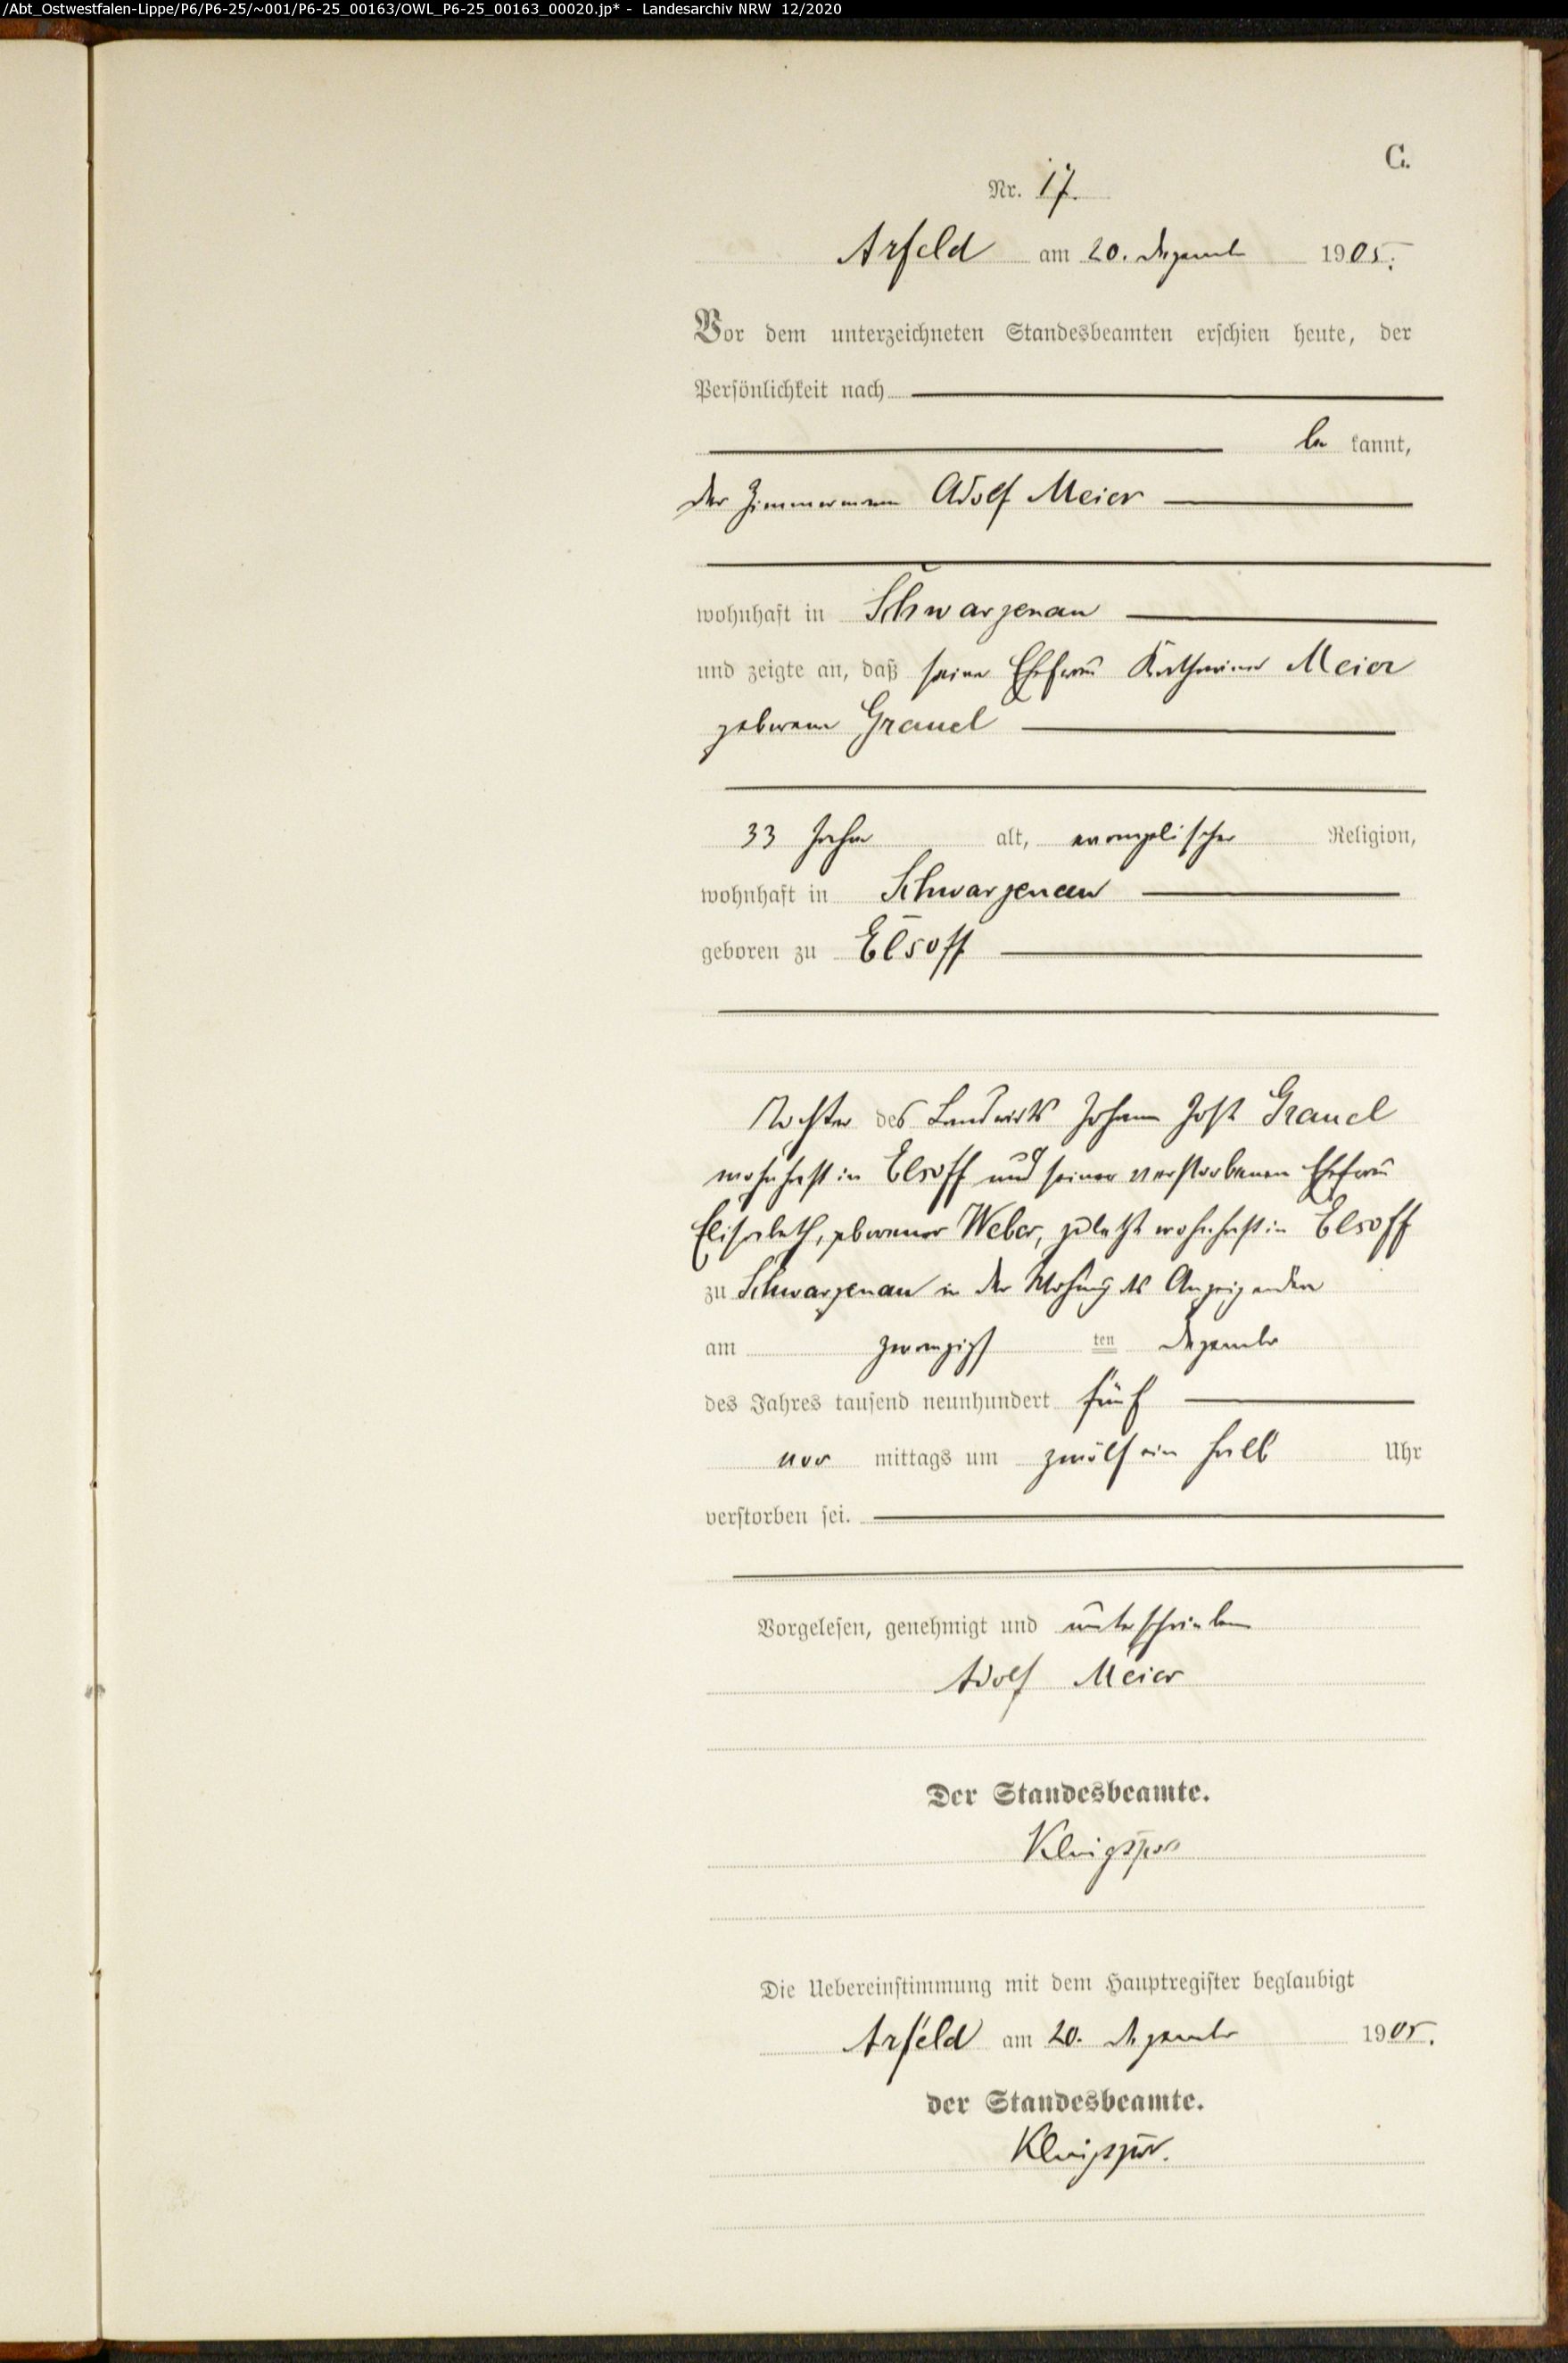 /Abt_Ostwestfalen-Lippe/P6/P6-25/~001/P6-25_00163/OWL_P6-25_00163_00020.jp* - Landesarchiv NRW 12/2020
C.
Nr. 17.
Arfeld am 20. Dezember 1905.
Vor dem unterzeichneten Standesbeamten erschien heute, der
Persönlichkeit nach
be kannt,
der Zimmermann Adolf Meier
wohnhaft in Schwarzenau
und zeigte an, daß seine Ehefrau Katharine Meier
geborene Grauel
33 Jahre alt, evangelischer Religion,
wohnhaft in Schwarzenau
geboren zu Elsoff
Tochter des Landwirts Johann Jost Grauel
wohnhaft in Elsoff und seiner verstorbenen Ehefrau
Elisabeth, geborener Weber, zuletzt wohnhaft in Elsoff
zu Schwarzenau in der Wohnung des Anzeigenden
am zwanzigsten Dezember
des Jahres tausend neunhundert fünf
vor mittags um zwölf ein halb Uhr
verstorben sei.
Vorgelesen, genehmigt und unterschrieben
Adolf Meier
Der Standesbeamte.
Klingspor
Die Uebereinstimmung mit dem Hauptregister beglaubigt
Arfeld am 20. Dezember 1905.
der Standesbeamte.
Klingspor.